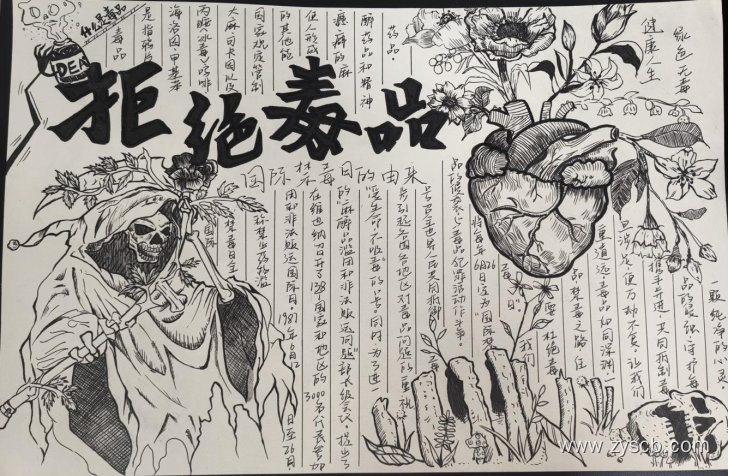 什么是毒品
IDEA
拒绝毒品
毒品
是指鸦片
海洛因、甲基苯
丙胺(冰毒)、吗啡
大麻、可卡因以及
国家规定管制
的其他能
使人形成
瘾癖的麻
醉药品和精神
药品。
绿色无毒
健康人生
国际禁毒日的由来
国际
禁毒日全
称禁止药物滥
用和非法贩运国际日。1987年6月12
日至26日
在维也纳召开了138个国家和地区的
3000名代表参加
的"麻醉品滥用和非法贩运问题"部长级会议提出了
爱生命,不吸毒"的口号。同时,为了进
一步引起各国各地区对毒品问题的重视
号召全世界人民共同抵御
毒品的侵袭,与毒品犯罪活动作斗争。
将每年6月26
日定为"国际禁毒
日"
我们
要杜绝毒
品禁毒之路任
重道远毒品如同深渊一
旦涉足,便万劫不复。让我们
携手并进,共同抵制毒
品的侵蚀,守护每
一颗纯净的心灵。
www.zyscb.com